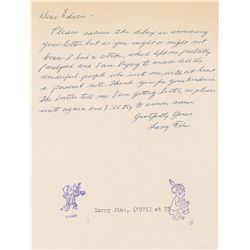 Dear Edwin -
Please excuse the delay in answering
your letter but as you might or might not
know I had a stroke, which left me partially
paralyzed and I am trying to answer all the
wonderful people who write me, with at least
a personal note. Thank you for your kindness
The doctor tell me I am getting better, so please
write again and I'll try to answer sooner
Gratefully Yours
Larry Fine
LARRY
Larry Fine, (1975) at 73